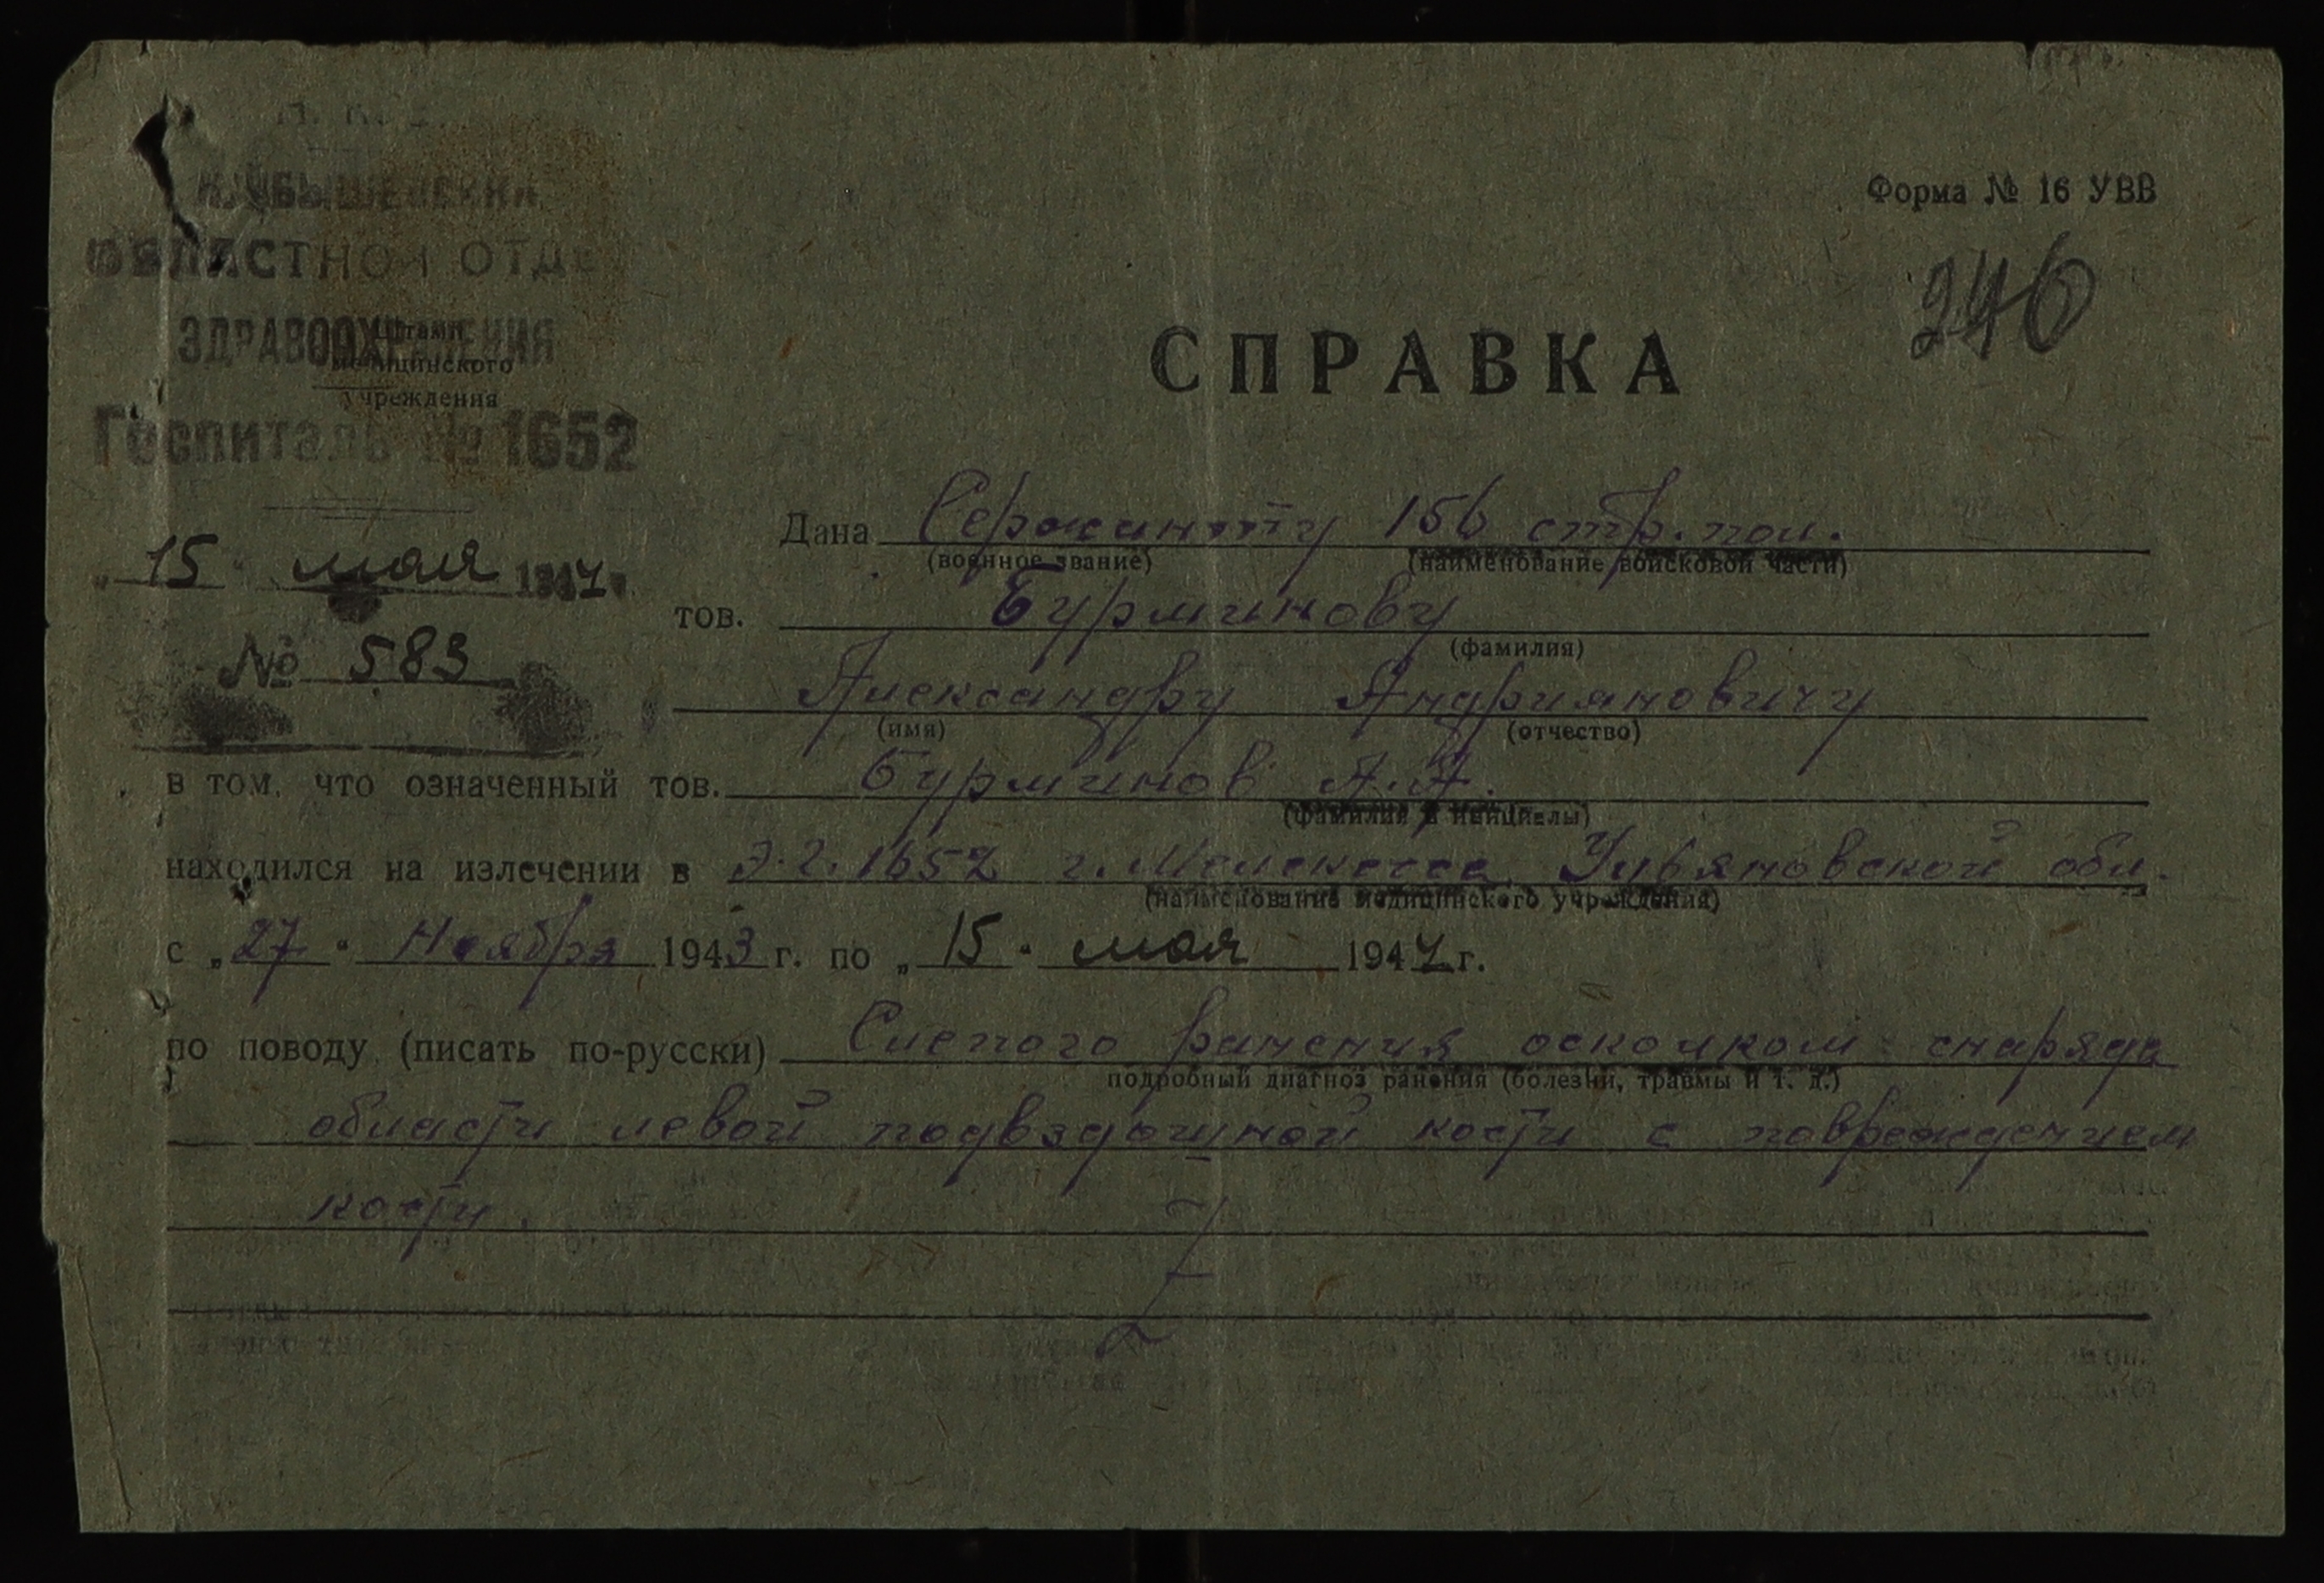 КУЙБЫШЕВСКИЙ
ОБЛАСТНОЙ ОТДЕЛ
ЗДРАВООХРАНЕНИЯ
Штамп
медицинского
учреждения
Госпиталь № 1652
„15“ мая 1944 г.
№ 583
Форма № 16 УВВ
246
СПРАВКА
Дана Сержанту 156 стр. пол.
(военное звание) (наименование войсковой части)
тов. Бурминову
(фамилия)
Александру Андрияновичу
(имя) (отчество)
в том, что означенный тов. Бурминов А. А.
(фамилия и инициалы)
находился на излечении в Э.Г. 1652 г. Мелекессе Ульяновской обл.
(наименование медицинского учреждения)
с „27“ Ноября 1943 г. по „15“ мая 1944 г.
по поводу (писать по-русски) Слепого ранения осколком снаряда
подробный диагноз ранения (болезни, травмы и т. д.)
области левой подвздошной кости с повреждением
кости.